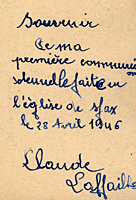 Souvenir
De ma
première communion
solennelle faite en
l'église de sfax
le 28 Avril 1946
Claude
Laffaille